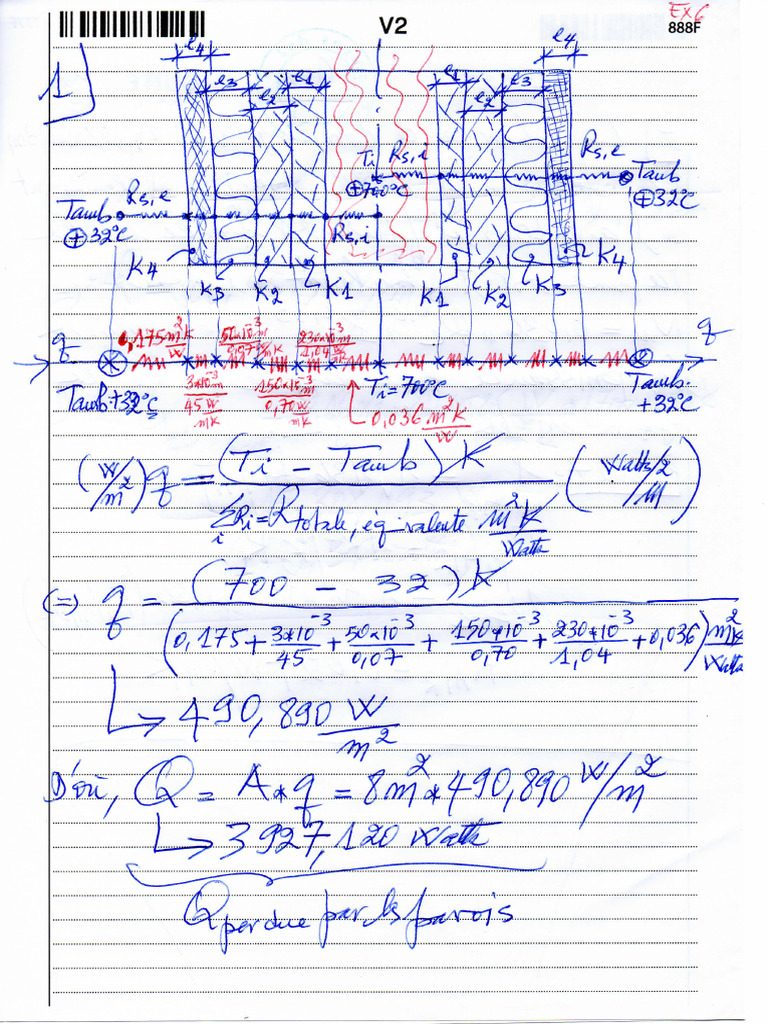 V2
Ex6
888F
1
e4 e3 e2 e1 e1 e2 e3 e4
Ti Rs,i Rs,e
⊕700°C
Tamb ⊕32°C
Rs,e
Tamb ⊕32°C
Rs,i
K4 K3 K2 K1 K1 K2 K3 K4
q 0,175 m²K/W 50*10⁻³m/0,07 W/mK 230*10⁻³m/1,04 W/mK q
Tamb +32°C 3*10⁻³m/45 W/mK 150*10⁻³m/0,70 W/mK Ti=700°C Tamb. +32°C
0,036 m²K/W
(W/m²) q = (Ti - Tamb) K / ∑Ri = Rtotale, équivalente m²K/Watts (Watts/m²)
(=) q = (700 - 32) K / (0,175 + 3*10⁻³/45 + 50*10⁻³/0,07 + 150*10⁻³/0,70 + 230*10⁻³/1,04 + 0,036) m²K/Watts
↳ 490,890 W/m²
D'où, Q = A * q = 8m² * 490,890 W/m²
↳ 3927,120 Watts
Q perdue par les parois